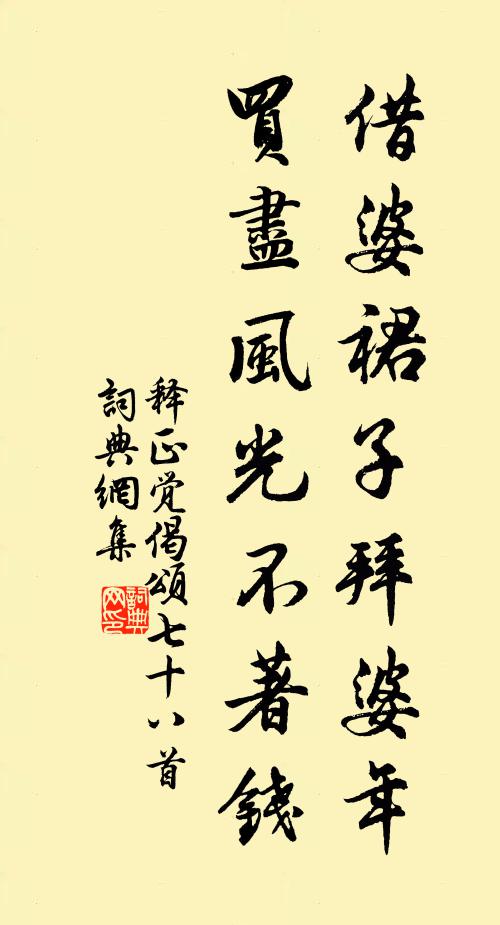 借婆裙子拜婆年
買盡風光不著錢
释正觉偈頌七十八首
詞典網集
詞典网印